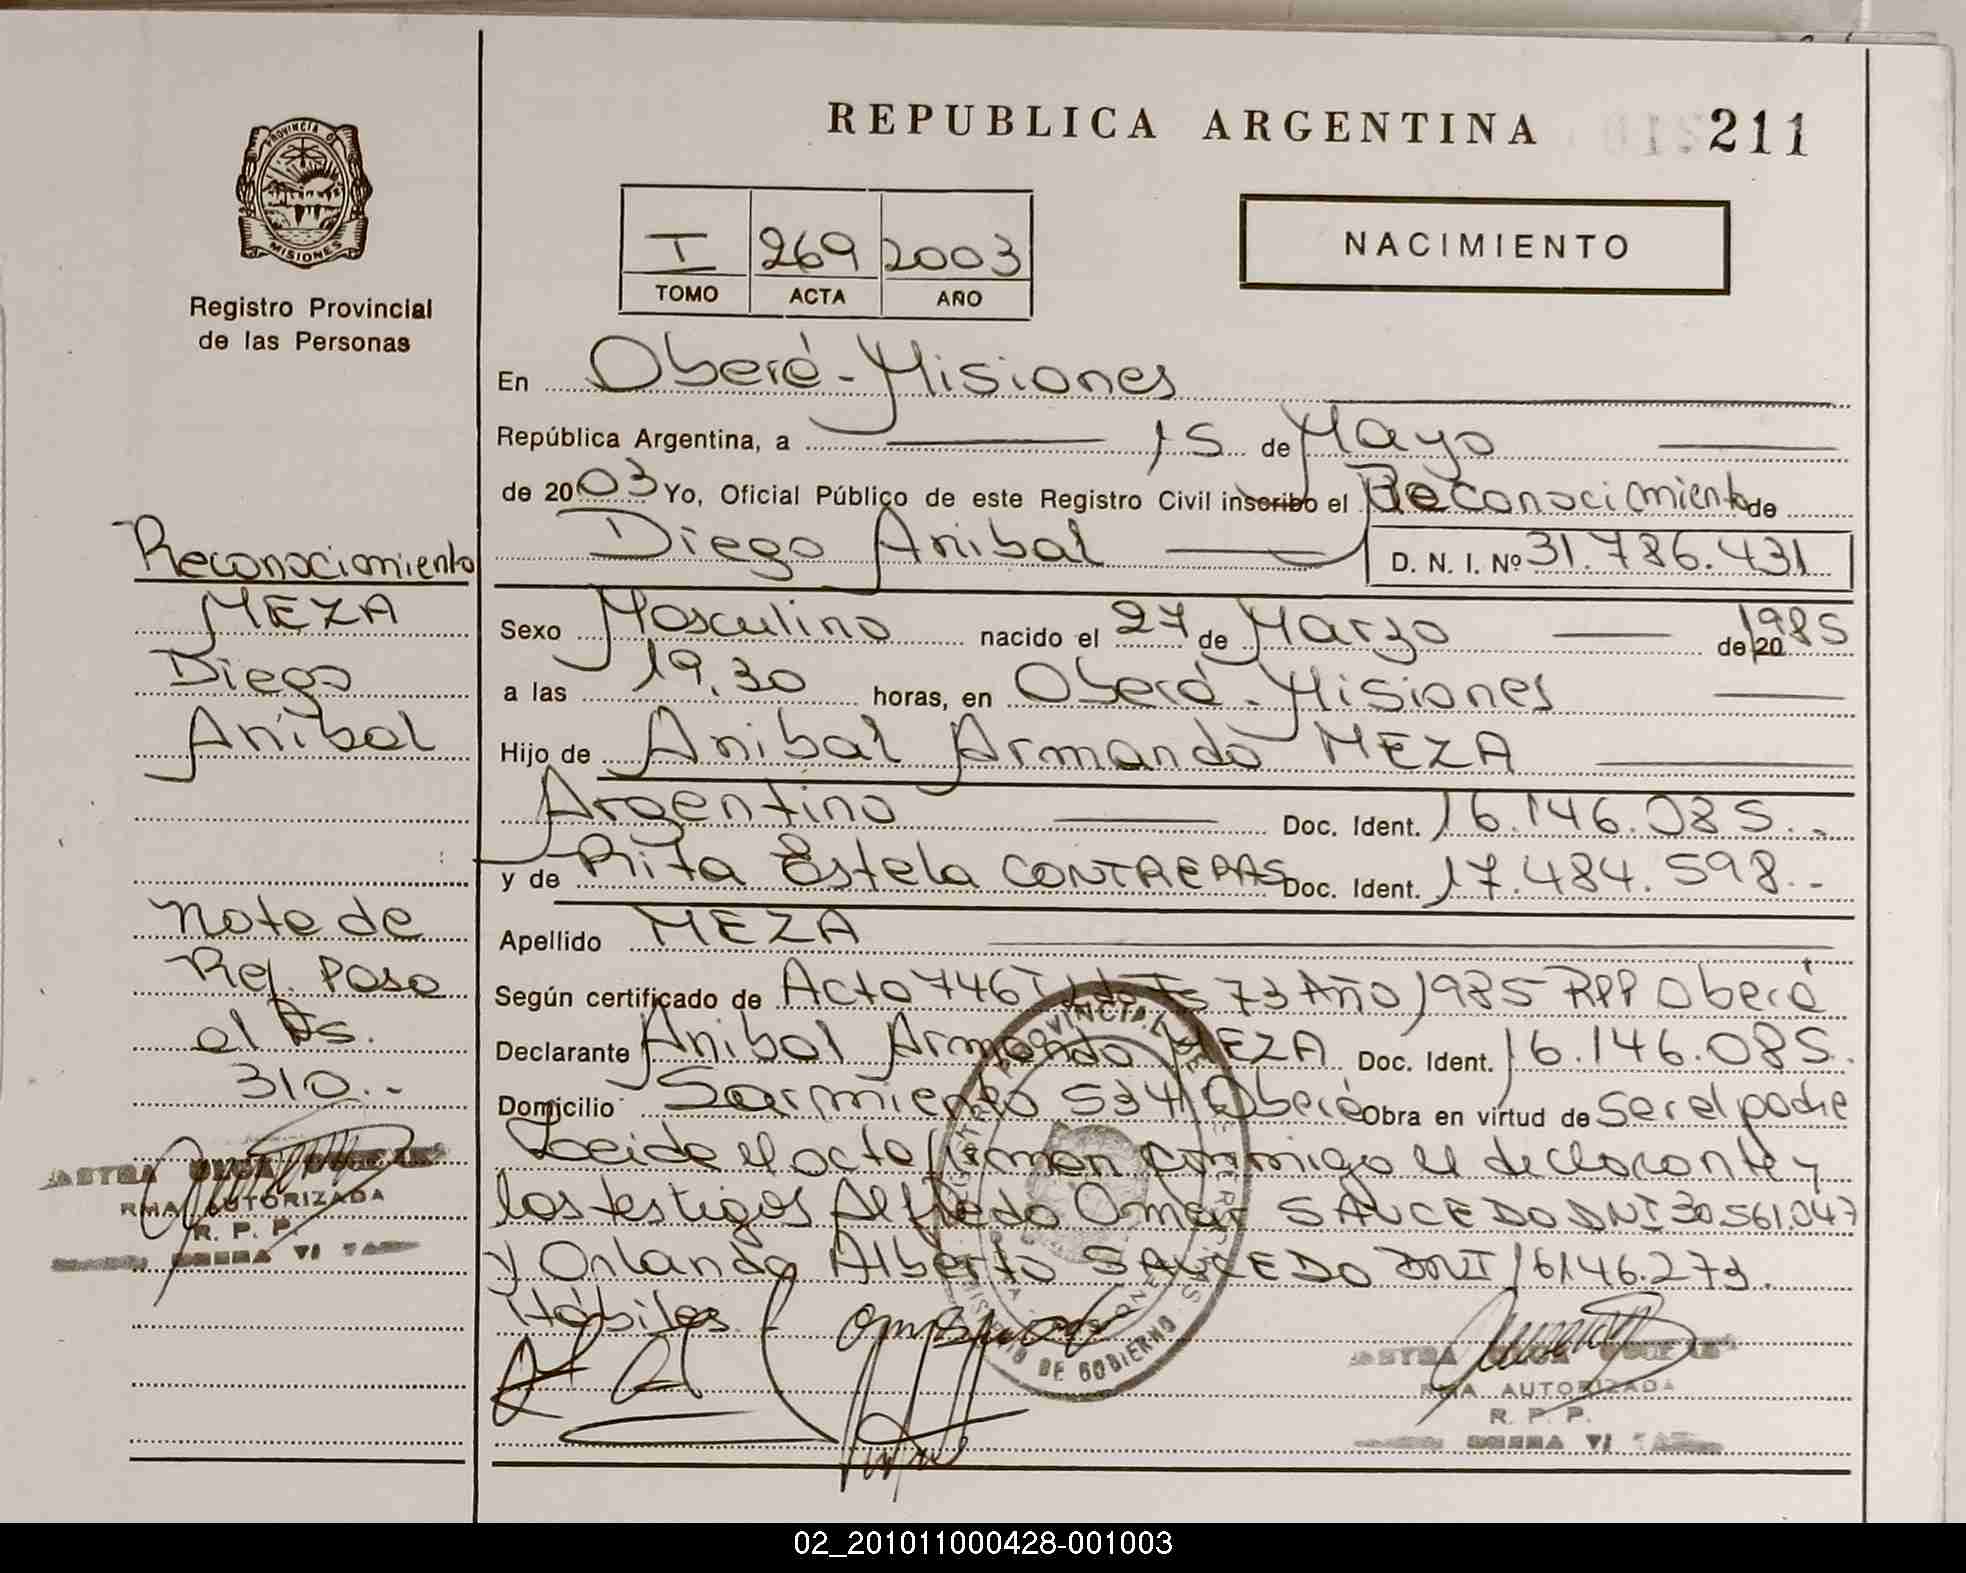 REPUBLICA ARGENTINA 211
PROVINCIA DE
MISIONES
Registro Provincial
de las Personas
I 269 2003
TOMO ACTA AÑO
NACIMIENTO
En Oberá - Misiones
República Argentina, a 15 de Mayo
de 2003 Yo, Oficial Público de este Registro Civil inscribo el Reconocimiento de
Diego Anibal D. N. I. Nº 31.786.431
Sexo Masculino nacido el 27 de Marzo de 20 1985
a las 19,30 horas, en Oberá - Misiones
Hijo de Anibal Armando MEZA
Argentino Doc. Ident. 16.146.085.-
y de Rita Estela CONTRERAS Doc. Ident. 17.484.598.-
Apellido MEZA
Según certificado de Acta 746 T I Fs 73 Año 1985 RPP Oberá
Declarante Anibal Armando MEZA Doc. Ident. 16.146.085.
Domicilio Sarmiento 534 Oberá Obra en virtud de Ser el padre
Leida el acta firman conmigo el declarante y
los testigos Alfredo Omar SAUCEDO DNI 30.561.047
y Orlando Alberto SAUCEDO DNI 16146.273.
Hábiles
Reconocimiento
MEZA
Diego
Anibal
Nota de
Ref. Paso
al Fs.
310.-
RMA AUTORIZADA
R. P. P.
RMA AUTORIZADA
R. P. P.
DE GOBIERNO
02_201011000428-001003